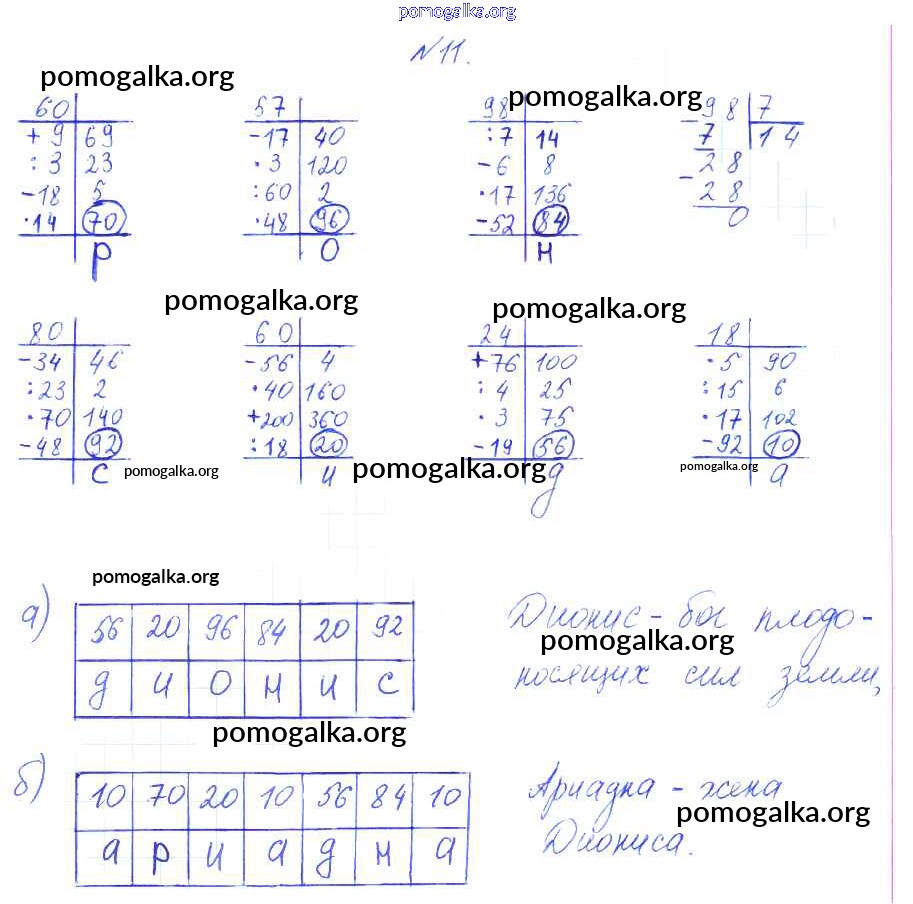 pomogalka.org
№11.
pomogalka.org
pomogalka.org
60
+ 9 69
: 3 23
- 18 5
· 14 70
р
57
- 17 40
· 3 120
: 60 2
· 48 96
о
98
: 7 14
- 6 8
· 17 136
- 52 84
н
- 98 7
7 14
- 28
28
0
pomogalka.org
pomogalka.org
80
- 34 46
: 23 2
· 70 140
- 48 92
с
60
- 56 4
· 40 160
+ 200 360
: 18 20
и
24
+ 76 100
: 4 25
· 3 75
- 19 56
д
18
· 5 90
: 15 6
· 17 102
- 92 10
а
pomogalka.org
pomogalka.org
pomogalka.org
pomogalka.org
а)
56 20 96 84 20 92
д и о н и с
Дионис - бог плодо-
pomogalka.org
носящих сил земли,
pomogalka.org
б)
10 70 20 10 56 84 10
а р и а д н а
Ариадна - жена
pomogalka.org
Диониса.